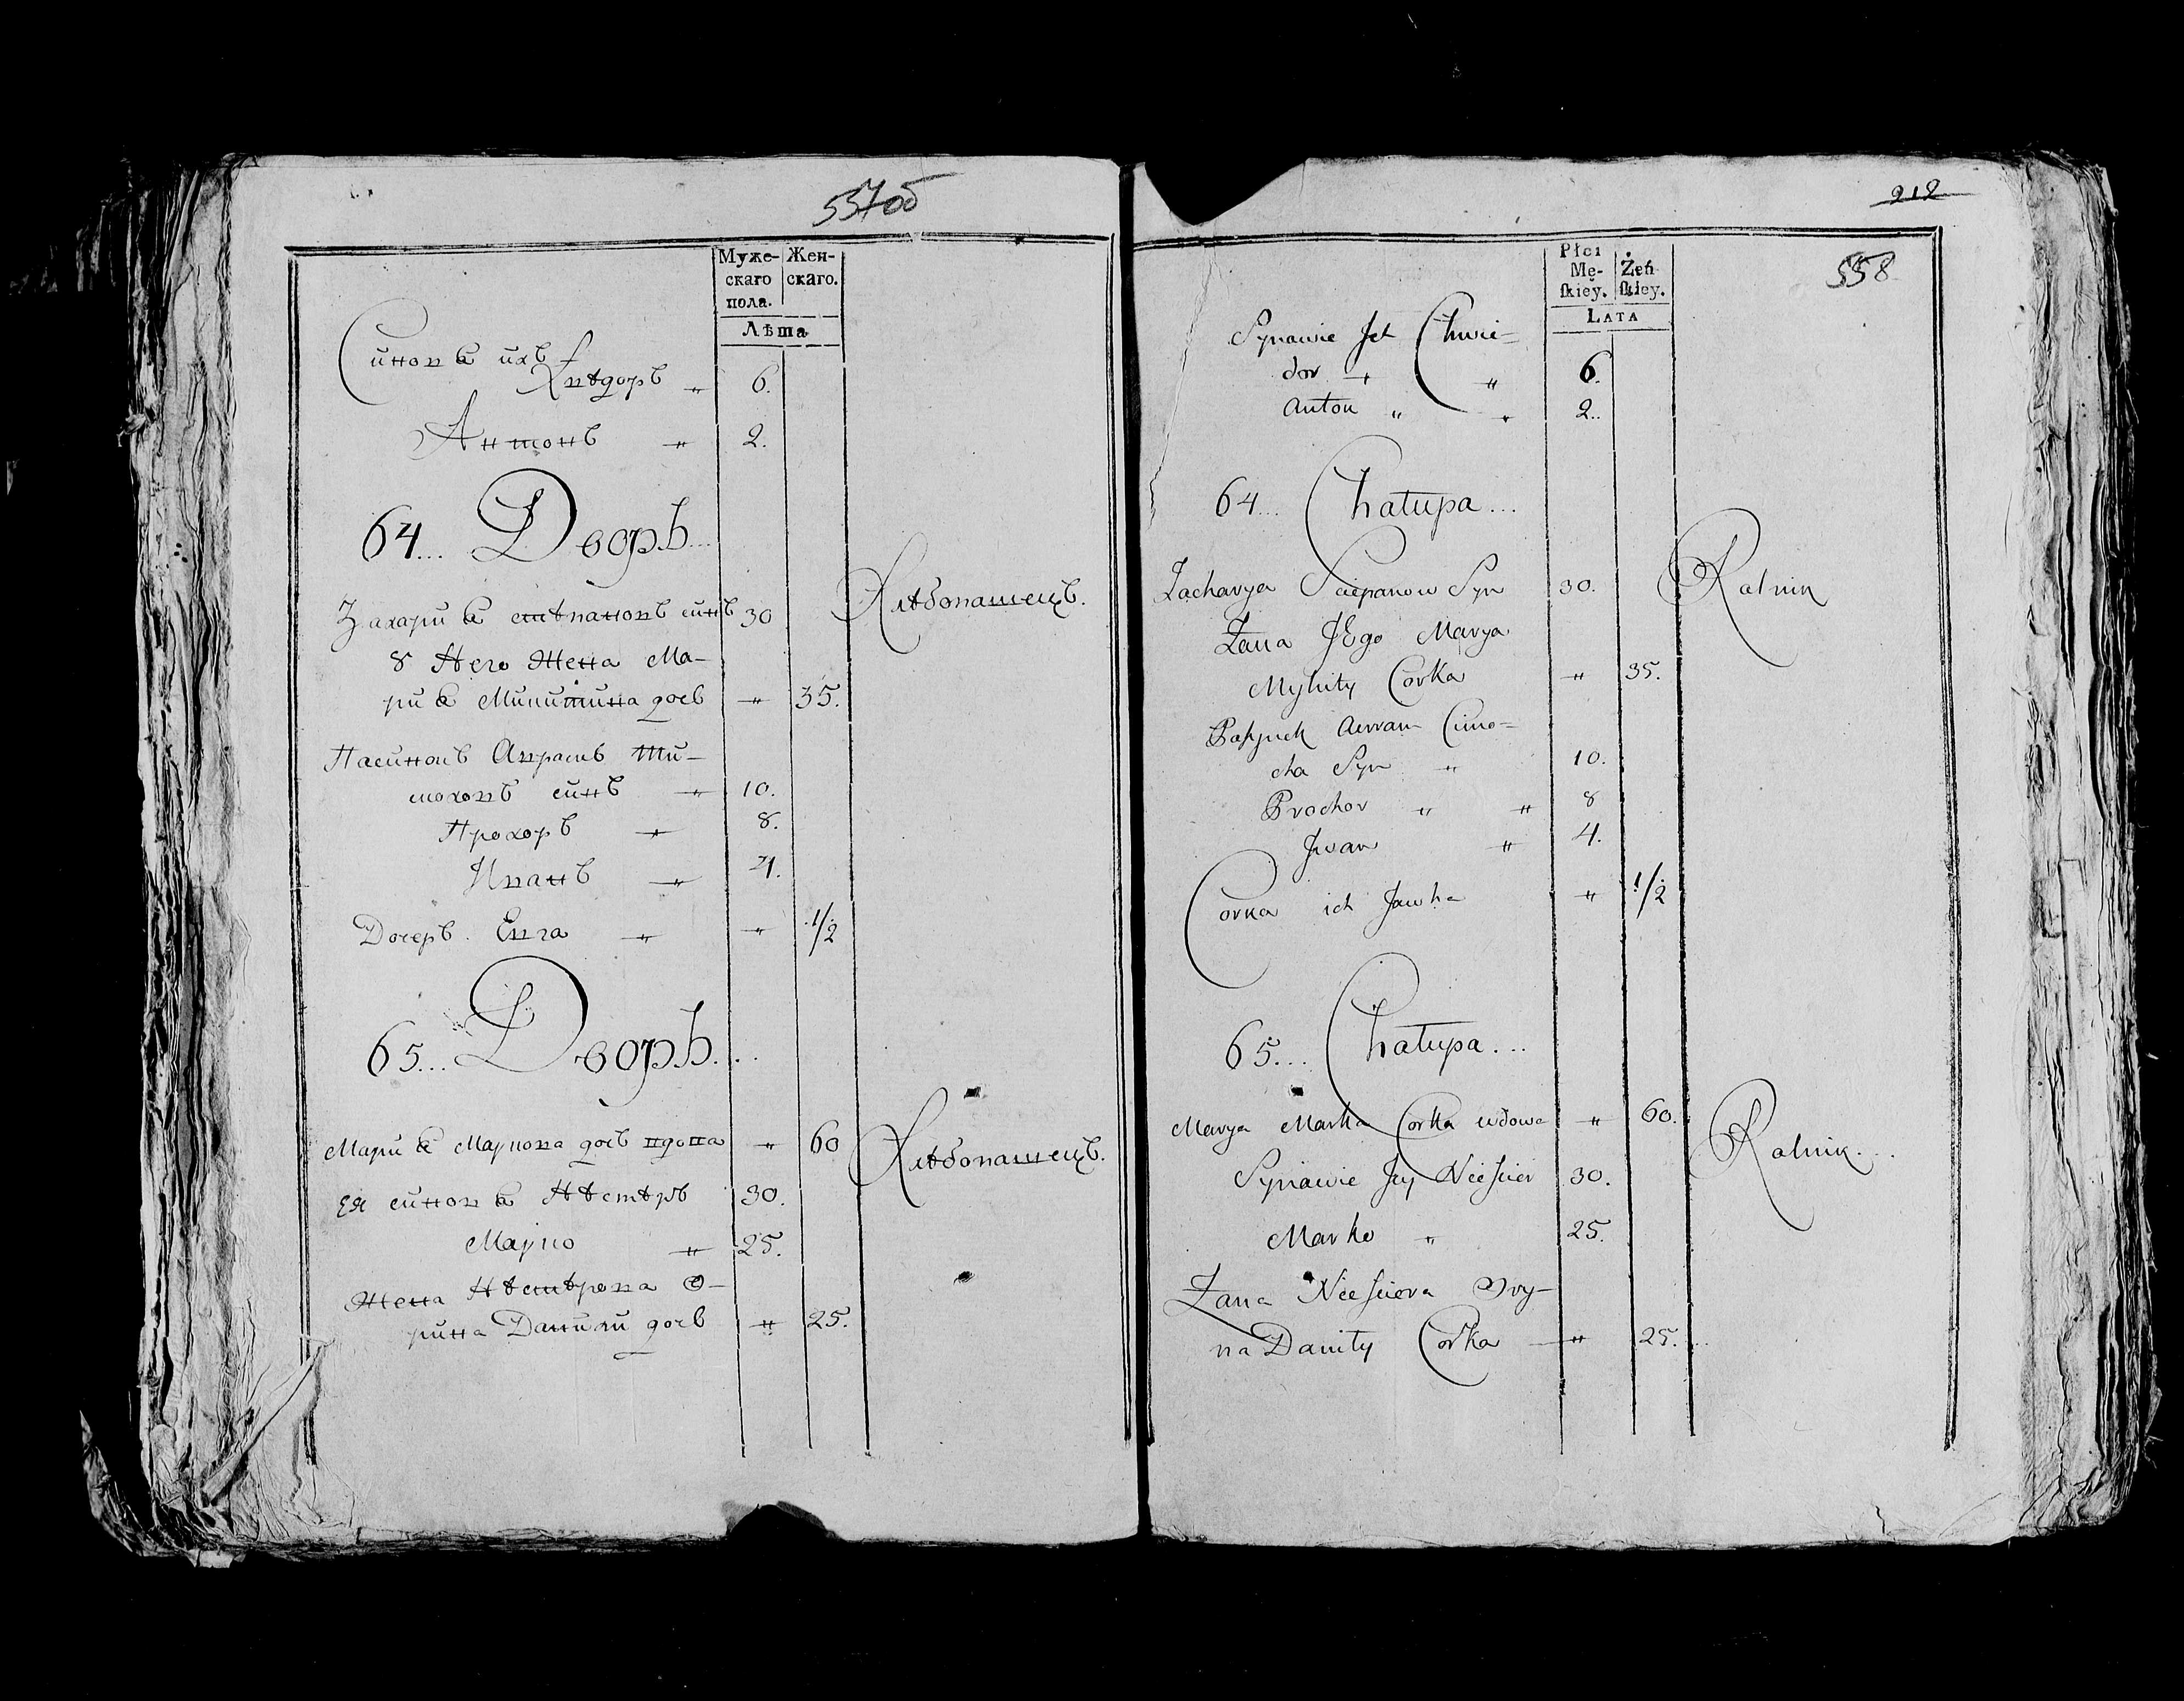 557об
Муже- Жен-
скаго скаго.
пола.
Лѣта
Синовѣ ихъ
Хвѣдоръ „ 6.
Антонъ „ 2.
64... Дворъ...
Захариѣ стѣпановъ синъ 30 Хлѣбопашецъ.
8 Него Жена Ма-
риѣ Микитина дочь „ 35.
Пасинокъ Аврамъ Ти-
моховъ синъ „ 10.
Прохоръ „ 8.
Иванъ „ 4.
Дочеръ. Евга „ „ 1/2
65... Дворъ...
Мариѣ Маркова дочь вдова „ 60 Хлѣбопашецъ.
ея синовѣ Нѣстѣръ 30.
Марко „ 25.
Жена Нѣстѣрова О-
рина Данили дочь „ 25.
212
558
Płci
Mę- Żeń
skiey. skiey.
LATA
Synawie Ich Chwie-
dor „ „ 6.
Anton „ „ 2..
64... Chatupa...
Zacharya Sciepanow Syn 30. Ralnik
Zana JEgo Marya
Mykity Corka „ 35.
Pasynek Awram Cimo-
cha Syn „ 10.
Prochor „ „ 8
Jwan „ 4.
Corka ich Jawha „ 1/2
65.... Chatupa...
Marya Marka Corka wdowa „ 60. Ralnik...
Synawie Jey Niescier 30.
Marko „ 25.
Zana Niesciera Ory-
na Danity Corka „ 25...